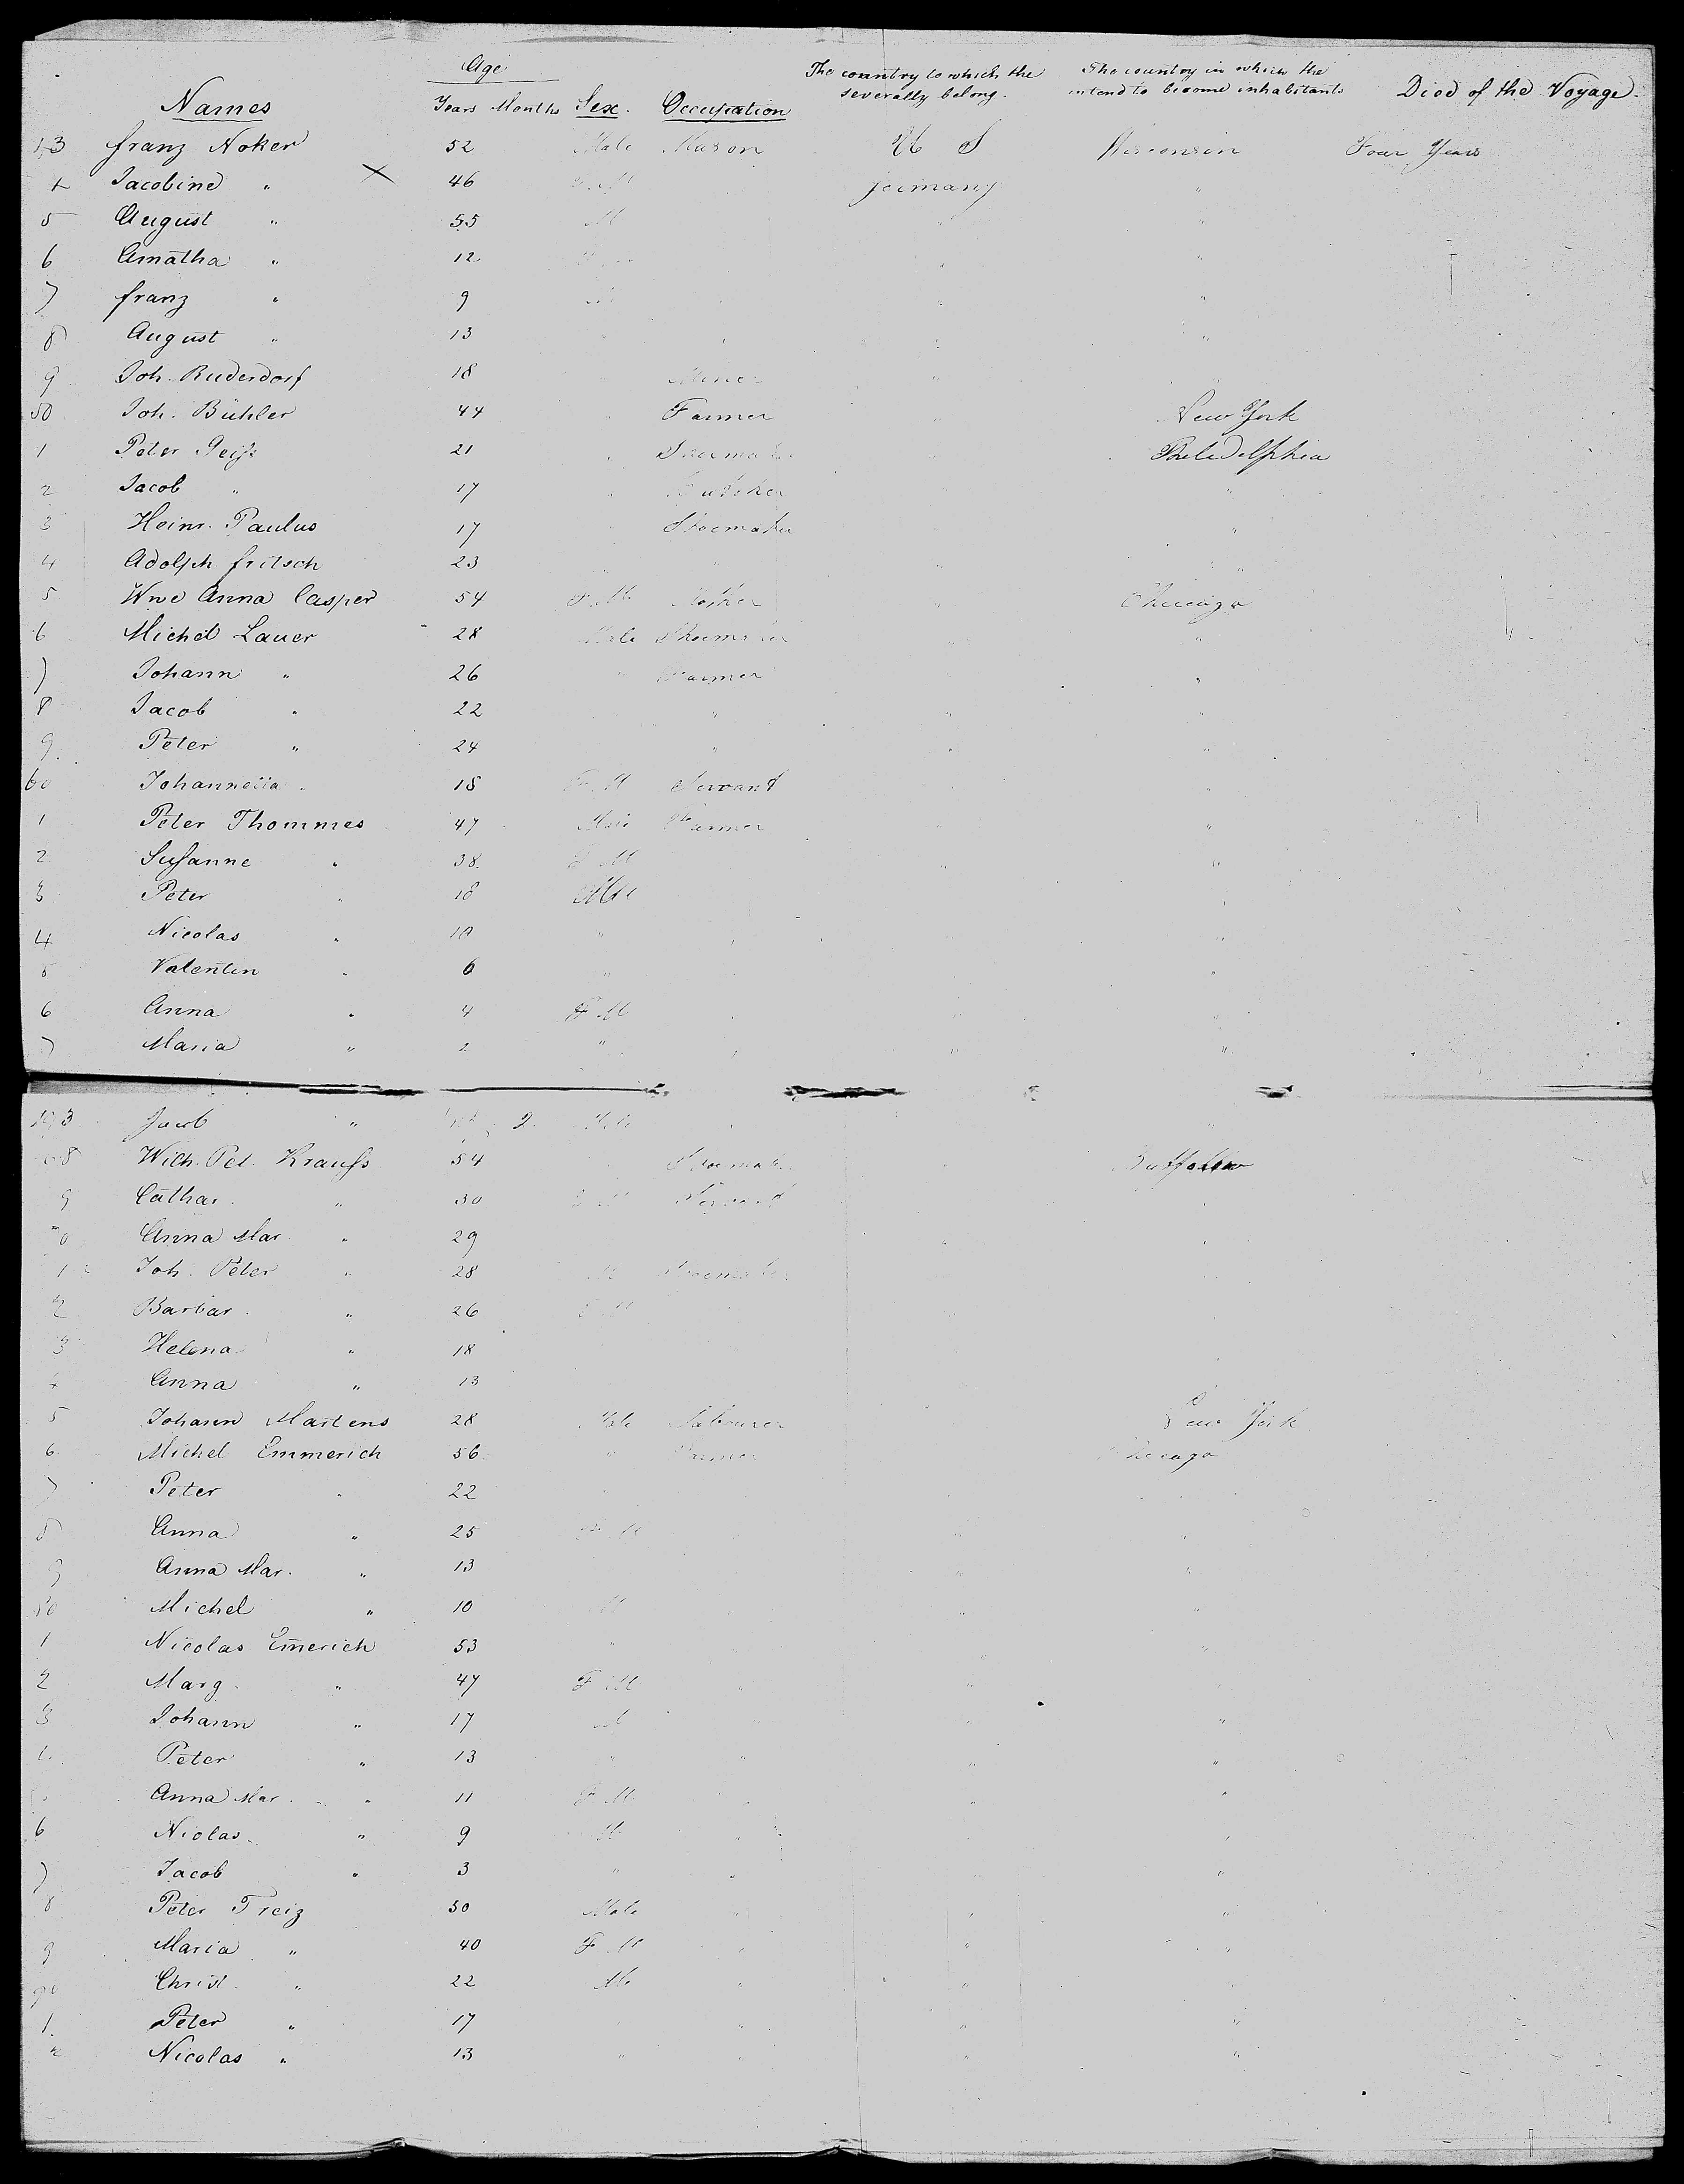 Age
The country to which the The country in which the
Names Years Months Sex. Occupation severally belong. intend to become inhabitants Died of the Voyage.
43 franz Noker 52 Male Mason U S Wisconsin Four Years
Jacobine " 46 F. M germany "
5 August " 55 M "
6 Amatha " 12 " "
7 franz " 9 M " "
8 August " 13 " "
9 Joh. Rudersdorf 18 Miner " "
50 Joh. Bühler 44 Farmer New York
1 Peter 21 Shoemaker " Philadelphia
2 Jacob " 17 " Butcher "
3 Heinr. Paulus 17 Shoemaker "
4 Adolph fritsch 23 " " "
5 Wwe Anna Casper 54 F. M. " Chicago
6 Michel Lauer 28 Male Shoemaker "
7 Johann " 26 " Farmer "
8 Jacob " 22 " " "
9. Peter " 24 " " "
60 Johannetta " 18 F. M Servant "
1 Peter Thommes 47 Male Farmer "
2 Susanne " 38. F M " "
3 Peter " 18 Male "
4 Nicolas " 10 " "
5 Valentin " 6 " "
6 Anna " 4 F M " "
7 Maria " 2 " " "
Jacob " 2 Male "
68 Wilh. Pet. Krauss 54 Shoemaker Buffalow
9 Cathar. " 30 F M Servant "
70 Anna Mar. " 29 "
1 Joh. Peter " 28 M Shoemaker
2 Barbar. " 26 F M
3 Helena " 18
4 Anna " 13
5 Johann Martens 28 Male Labourer New York
6 Michel Emmerich 56. " Farmer Chicago
7 Peter " 22 "
8 Anna " 25 F. M " "
9 Anna Mar. " 13 " "
80 Michel " 10 M " "
1 Nicolas Em̄erich 53 " " "
2 Marg. " 47 F M " " "
3 Johann " 17 M " "
4. Peter " 13 " " " "
Anna Mar. " 11 F M. " "
6 Niolas " 9 M " "
7 Jacob " 3 " " "
8 Peter Treiz 50 Male " "
9 Maria " 40 F M " " "
90 Christ. " 22 M. " " "
1. Peter " 17 " " "
2 Nicolas " 13 " " " "